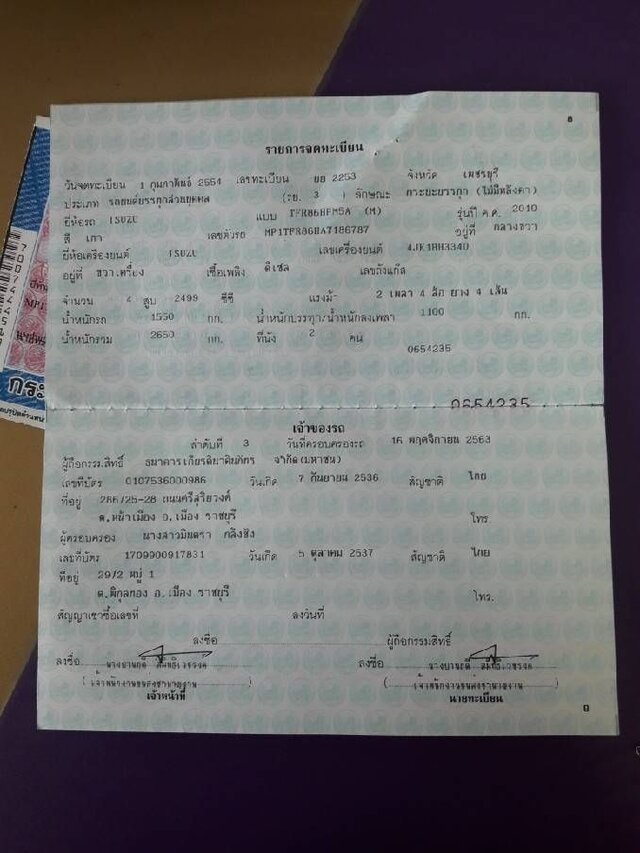 8
รายการจดทะเบียน
วันจดทะเบียน 1 กุมภาพันธ์ 2554 เลขทะเบียน 2253 จังหวัด เพชรบุรี
ประเภท รถยนต์บรรทุกส่วนบุคคล (รย. 3 ) ลักษณะ กระบะบรรทุก (ไม่มีหลังคา)
ยี่ห้อรถ ISUZU แบบ (M) รุ่นปี ค.ศ. 2010
สี เทา เลขตัวรถ MP1TFR86HA7186787 อยู่ที่ กลางขวา
ยี่ห้อเครื่องยนต์ ISUZU เลขเครื่องยนต์
อยู่ที่ ขวาเครื่อง เชื้อเพลิง ดีเซล เลขถังแก๊ส
จำนวน 4 สูบ 2499 ซีซี แรงม้า 2 เพลา 4 ล้อ ยาง 4 เส้น
น้ำหนักรถ 1550 กก. น้ำหนักบรรทุก/น้ำหนักลงเพลา 1100 กก.
น้ำหนักรวม 2650 กก. ที่นั่ง 2 คน
0654235
0654235
เจ้าของรถ
ลำดับที่ 3 วันที่ครอบครองรถ 16 พฤศจิกายน 2563
ผู้ถือกรรมสิทธิ์ ธนาคารเกียรตินาคินภัทร จำกัด(มหาชน)
เลขที่บัตร 0107536000986 วันเกิด 7 กันยายน 2536 สัญชาติ ไทย
ที่อยู่ 286/25-28 ถนนศรีสุริยวงศ์
ต.หน้าเมือง อ.เมือง ราชบุรี โทร
ผู้ครอบครอง นางสาวมินตรา กลิ่งชิง
เลขที่บัตร 1709900917831 วันเกิด 5 ตุลาคม 2537 สัญชาติ ไทย
ที่อยู่ 29/2 หมู่ 1
ต.พิกุลทอง อ.เมือง ราชบุรี โทร.
สัญญาเช่าซื้อเลขที่ ลงวันที่
ลงชื่อ ผู้ถือกรรมสิทธิ์
ลงชื่อ ลงชื่อ
(เจ้าพนักงานขนส่งชำนาญงาน) (เจ้าพนักงานขนส่งชำนาญงาน)
เจ้าหน้าที่ นายทะเบียน